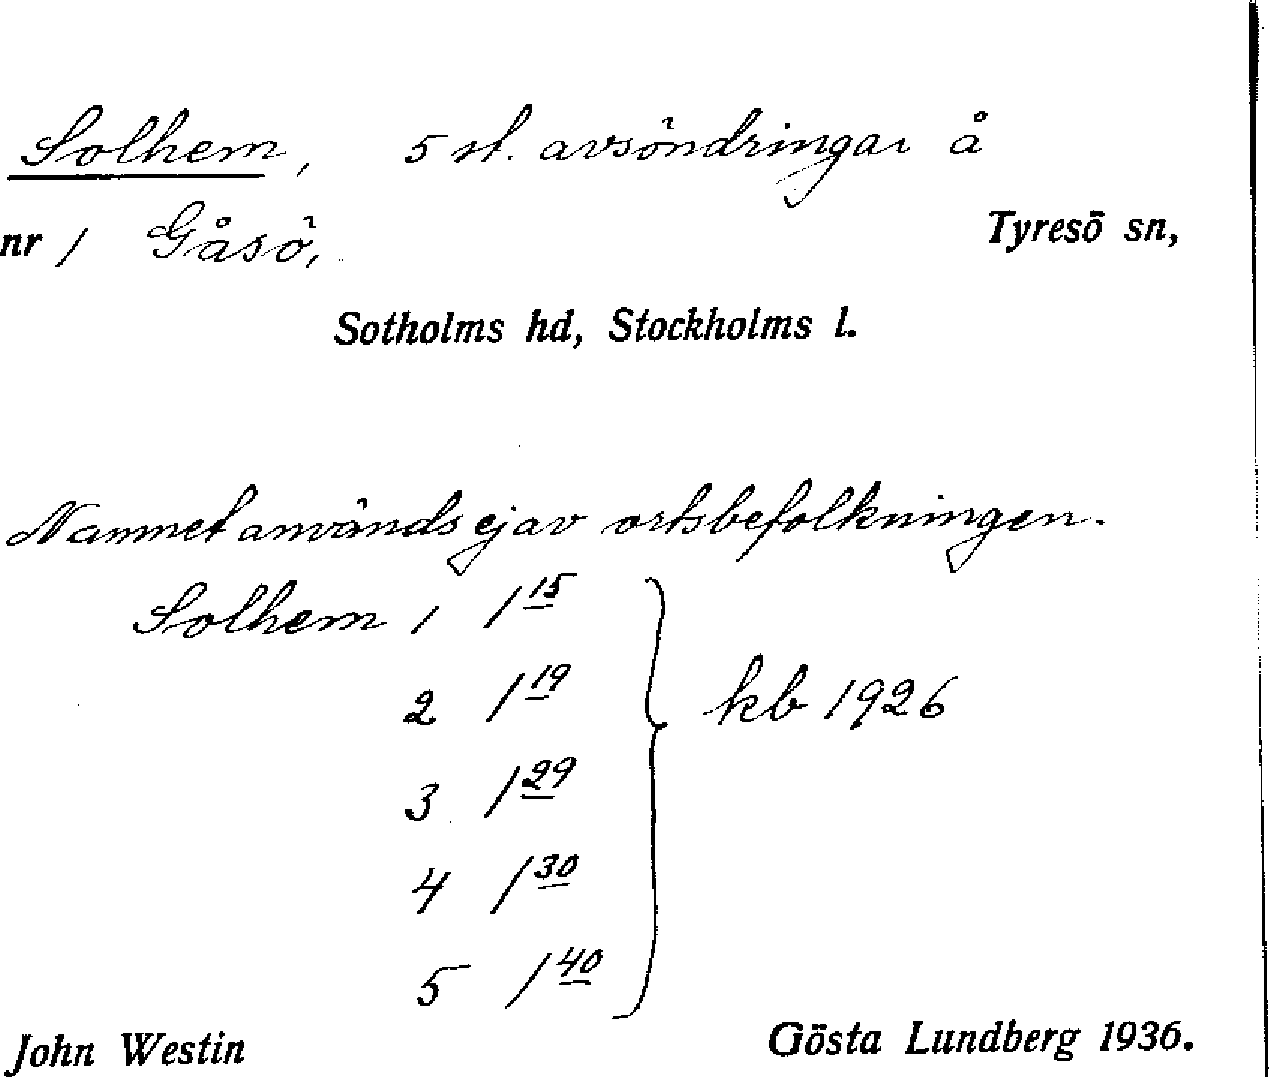 Solhem, 5 st. avsöndringar å
nr 1 Gåsö, Tyresö sn,
Sotholms hd, Stockholms l.
Namnet användes ej av ortsbefolkningen.
Solhem 1 1 15
2 1 19
3 1 29
4 1 30
5 1 40
kb 1926
John Westin Gösta Lundberg 1936.